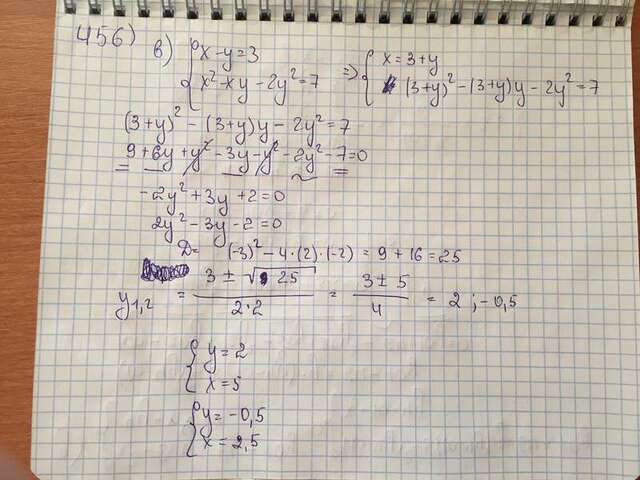 456) б) { x-y=3 x²-xy-2y²=7 => { x=3+y (3+y)²-(3+y)y-2y²=7
(3+y)²-(3+y)y-2y²=7
9+6y+y²-3y-y²-2y²-7=0
-2y²+3y+2=0
2y²-3y-2=0
D=(-3)²-4·(2)·(-2)=9+16=25
y1,2 = (3±√25)/(2·2) = (3±5)/4 = 2; -0,5
{ y=2 x=5
{ y=-0,5 x=2,5